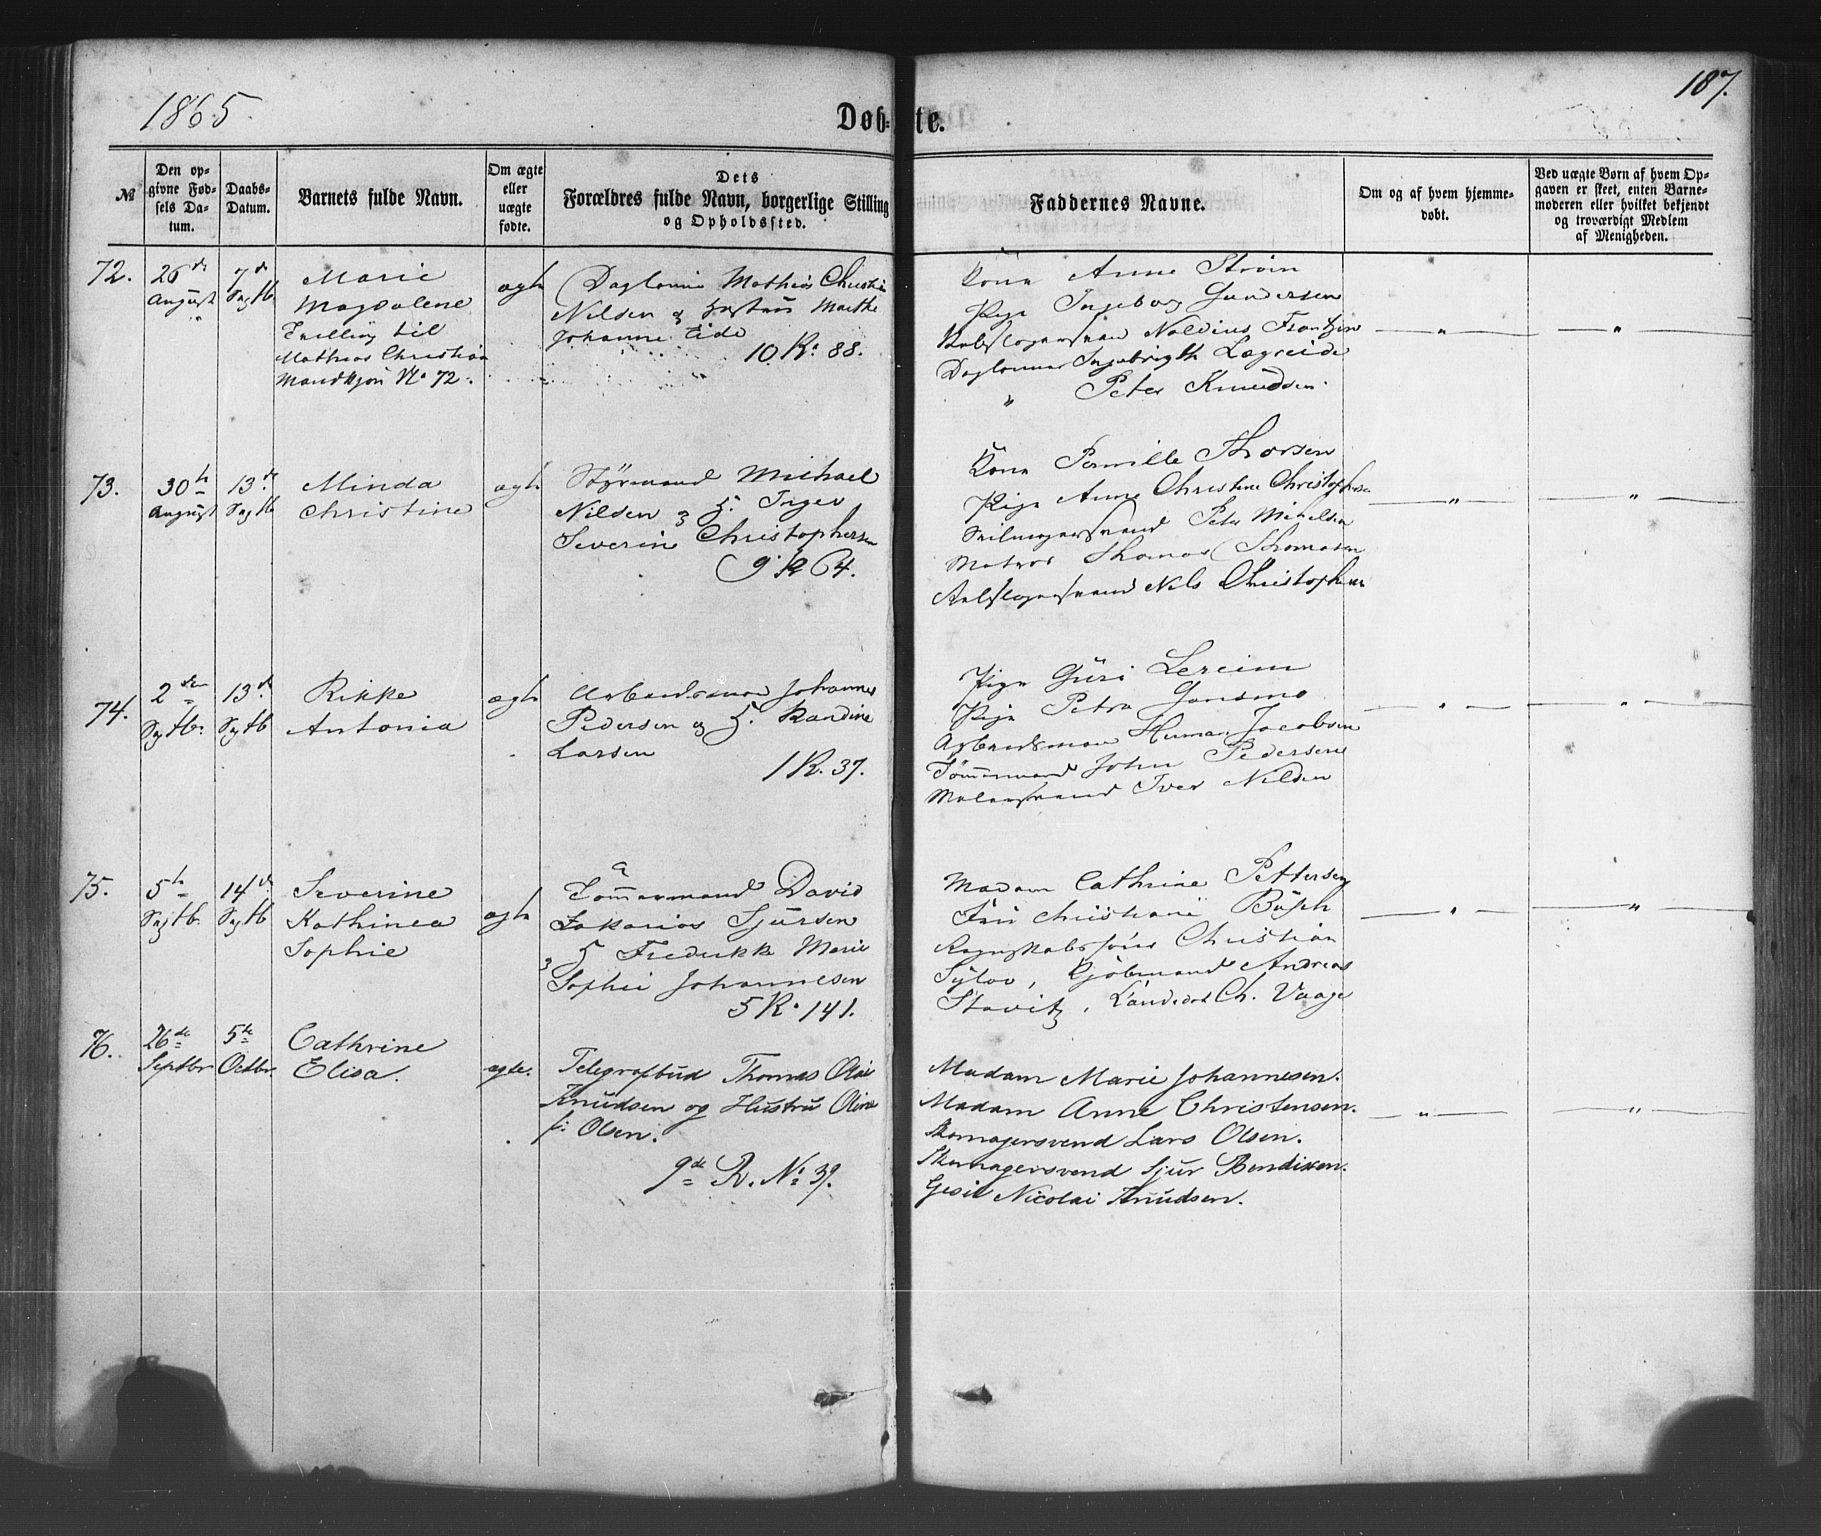 1865
Døb-
te.
187.
№
Den op-
givne Fød-
sels Da-
tum.
Daabs-
Datum.
Barnets fulde Navn.
Om ægte
eller
uægte
fødte.
Dets
Forældres fulde Navn, borgerlige Stilling
og Opholdssted.
Faddernes Navne.
Om og af hvem hjemme-
døbt.
Ved uægte Børn af hvem Op-
gaven er skeet, enten Barne-
moderen eller hvilket bekjendt
og troværdigt Medlem
af Menigheden.
72.
26de
August
7de
Septb
Marie
Magdalene
Tvilling til
Mathias Christian
Mandkjøn No 72.
ægte
Daglönner Mathias Christian
Nilsen og Hustru Marthe
Johanne Eide
10 R. 88.
Kone Anne Strøm
Pige Ingeborg Gundersen
Noldius Frantzen
Daglönner Ingebrigth Lægreide
" Peter Knudsen
— " —
— " —
73.
30te
August
13de
Septb
Minda
Christine
ægte
Styrmand Michael
Nilsen og H. Inger
Severin Christophersen
9 R 64.
Kone Pernille Thorsen
Pige Anne Christine Christophersen
Seilmagersvend Peter Mikelsen
Matros Thomas Thomasen
Nils Christophersen
— " —
— " —
74.
2den
Septbr.
13de
Septb
Rikke
Antonia
ægte
Arbeidsman Johannes
Pedersen og H. Randine
Larsen
1 R. 37.
Pige Güri Lereim
Pige Petra
Arbeidsman Herman Jacobsen
Tömmermand John Pedersen
Malersvend Iver Nilsen
— " —
— " —
75.
5te
Septb.
14de
Septb
Severine
Kathinca
Sophie
ægte
Tömmermand David
Zakarias Sjursen
og H Fredrikke Marie
Sophie Johannesen
5 R. 141.
Madam Cathrine Pettersen
Fru Christiane Büsch
Regnskabsförer Christian
Sylov, Kjöbmand Andreas
Stavitz, Kandidat Ch. Vaage
— " —
— " —
76.
26de
Septbr
5te
Octbr.
Cathrine
Elisa.
ægte.
Telegrafbud Thomas Olai
Knudsen og Hustru Oline
f: Olsen.
9de R. No 39.
Madam Marie Johannesen.
Madam Anne Christensen.
Skomagersvend Lars Olsen.
Skomagersvend Sjur Bendixen.
Nicolai Knudsen.
— " —
— " —